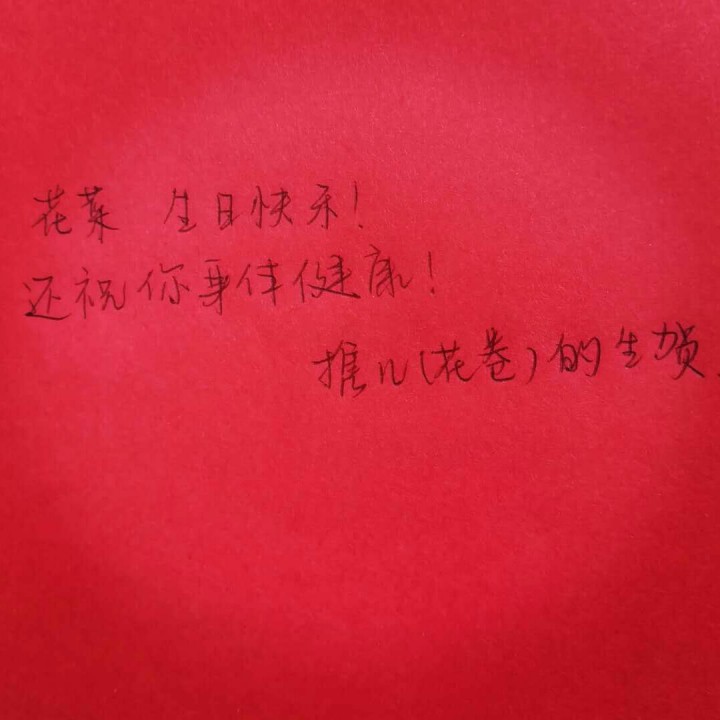 花菜 生日快乐!
还祝你身体健康!
携儿(花卷)的生贺.